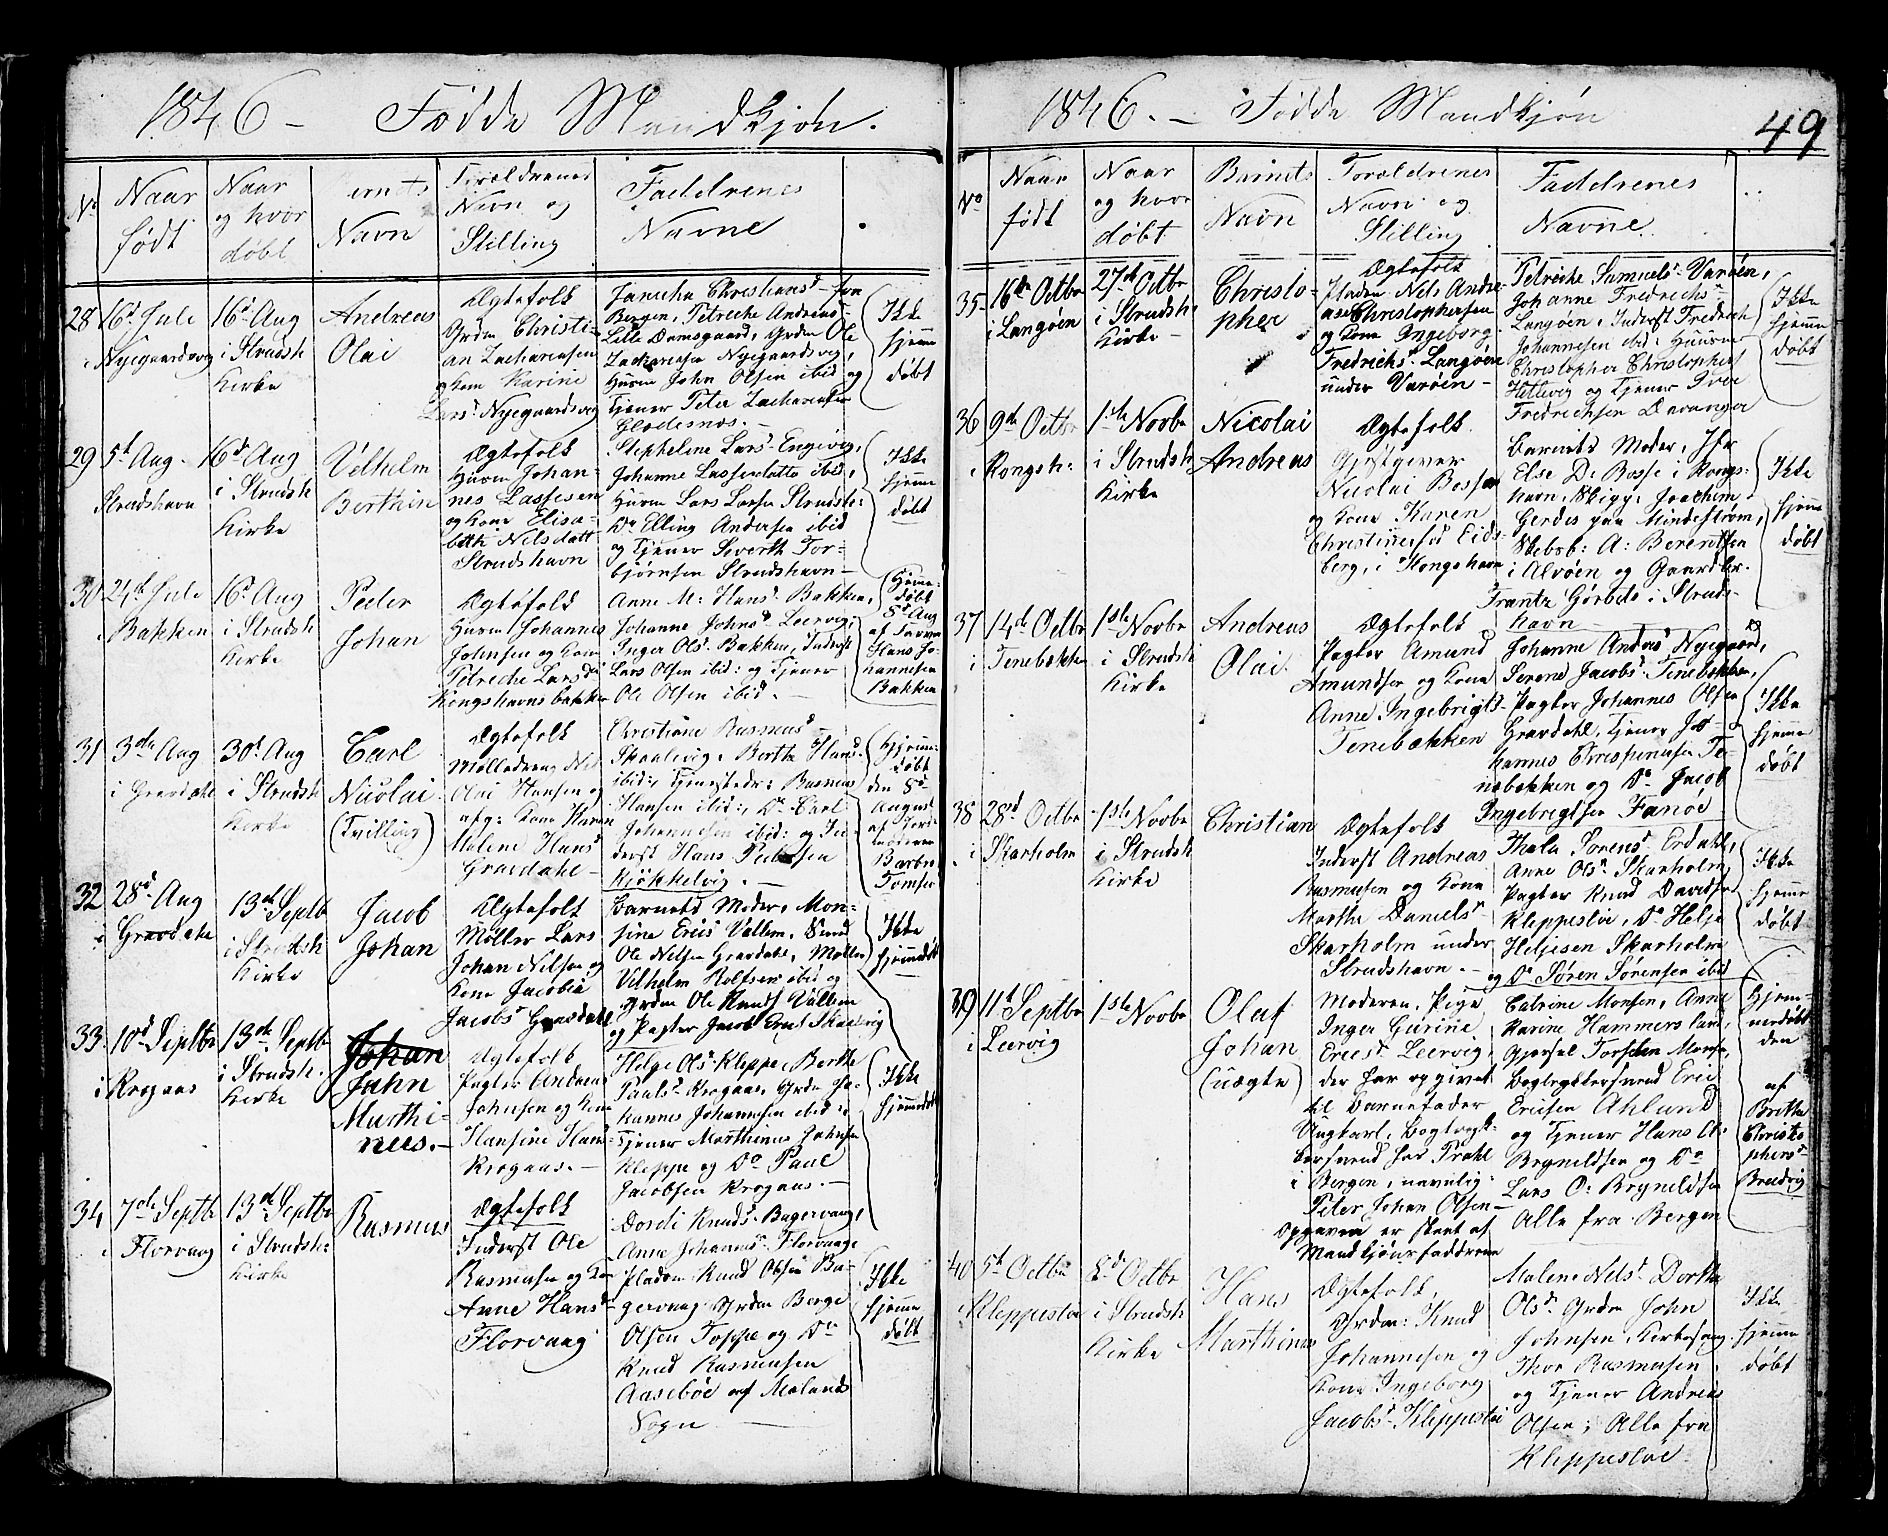 1846 – Fødde Mandkjøn.
No
Naar født
Naar og hvor døbt
Navn
Forældrenes Navn og Stilling
Faddrenes Navne
28
16d Juli
Nyegaardsvog
16d Aug
i Strudsh
Kirke
Andreas
Olai
Ægtefolk
Grdm Christi-
an Zachariasen
og Kone Karine
Lars d Nyegaardsvog
Janicha Christians d fra
Bergen, Petreche Andreas d
Lille Damsgaard, Grdm Ole
Zachariasen Nyegaardsvog,
Huusm John Olsen ibid og
Tjener Peter Zachariasen
Ikke
hjemme
døbt
29
5t Aug.
Strudshavn
16d Aug
i Strudsh
Kirke
Vilhelm
Berthin
Ægtefolk
Huusm Johan-
nes Lassesen
og Kone Elisa-
beth Nilsdatt
Strudshavn
Johanne Lassesdatter ibid,
Huusm Lars Larsen Strudsh:
Do Elling Andersen ibid
og Tjener Siverth Tor-
bjørnsen Strudshavn –
Ikke
hjemme
døbt
30
24d Juli
i Bakken
16d Aug
i Strudsh
Kirke
Peder
Johan
Ægtefolk
Huusm Johannes
Johnsen og Kone
Petreche Lars d
Kongshavns bakken
Anne M: Hans d Bakken,
Johanne Johns d Leervig,
Inger Ols d Bakken, Inderst
Lars Olsen ibid: og Tjener
Ole Olsen ibid. –
Hjemme-
døbt
8d Aug
af
Hans Jo-
hannesen
Bakken
31
3die Aug
i Gravdahl
30d Aug
i Strudsh
Kirke
Carl
Nicolai
(Tvilling)
Ægtefolk
Mølledreng Nils
Olai Hansen og
Kone Karen
Malene Hans d
Gravdahl –
Christiane Rasmus d
Skaalevig, Berthe Hans d
ibid:, Rasmus
Hansen ibid:, Do Carl
Johannesen ibid: og In-
derst Hans Pedersen
Kjøkkelvig. –
Hjemme-
døbt
den 8d
August
af Jord-
moderen
32
28d Aug
i Gravdahl
13d Septb
i Strudsh
Kirke
Jacob
Johan
Ægtefolk
Møller Lars
Johan Nilsen og
Kone Jacobia
Jacobs d Gravdahl
Barnets Moder, Mon-
sine Erics Vallem, Smed
Ole Nilsen Gravdahl, Møller
Vilhelm Rolfsen ibid og
Grdm Ole Knuds Vallem
og Pagter Jacob Ericsen Skaalevig
Ikke
hjemmedøbt
33
10d Septbr
i Krogaas
13d Septbr
i Strudsh.
Kirke
Johan
John
Marthi-
nus. –
Ægtefolk
Pagter Andreas
Johnsen og Kone
Hansine Hans d
Krogaas. –
Helge Ols d Kleppe, Berthe
Pauls d Krogaas, Grdm Jo-
hannes Johannesen ibid:
Tjener Marthinus Johnsen
Kleppe og Do Paul
Jacobsen Krogaas. –
Ikke
hjemmedøbt
34
7d Septbr
i Florvaag
13d Septbr
i Strudsh:
Kirke
Rasmus
Ægtefolk
Inderst Ole
Rasmusen og Kone
Anne Hans d
Florvaag
Dordi Knuds d Bagervaag,
Anne Johannes d Florvaag
Pladsm Knud Olsen Ba-
gervaag, Grdm Berge
Olsen Toppe og Do
Knud Rasmusen
Aasebøe af Malands
Sogn –
Ikke
hjemme
døbt
1846. – Fødde Mandkjøn
49
No
Naar født
Naar og hvor døbt
Barnets Navn
Forældrenes Navn og Stilling
Faddrenes Navne
35
16de Octbr
i Langøen
27d Octbr
i Strudsh
Kirke
Christo-
pher
Ægtefolk
Pladsm: Nils Andre-
as Christophersen
og Kone Ingeborg
Fredrichs d Langøen
under Varøen –
Petreche Samuels d Varøen,
Johanne Fredrichs d
Langøen, Inderst Fredrich
Johannesen ibid: Huusm
Christopher Christophers
Hillevig og Tjener Iver
Fredrichsen Davanger
Ikke
hjemme
døbt
36
9de Octbr
i Kongsh:
1ste Novbr
i Strudsh
Kirke
Nicolai
Andreas
Ægtefolk
Gjestgiver
Nicolai Bosse
og Kone Karen
Christine fød Eids-
berg, i Kongshavn
Barnets Moder, Jfr
Else D: Bosse i Kongs-
havn, Joachim
Gerdes paa Mindestrøm,
Skibsb: A: Berentsen
i Alvøen og Gaardbr.
Frantz Gørbitz i Struds-
havn
Ikke
hjemme
døbt
37
14de Octbr
i Tenebækken
1ste Novbr
i Strudsh
Kirke
Andreas
Olai.
Ægtefolk
Pagter Amund
Amundsen og Kone
Anne Ingebrigts d
Tenebækken
Johanne Andrs d Nyegaard,
Serene Jacobs d Tenebækken,
Pagter Johannes Olsen
Gravdahl, Tjener Jo-
hannes Chrispinusen Te-
nebækken og Do Jacob
Ingebrigtsen Fanøe
Ikke
hjemme
døbt
38
28d Octbr
i Skarholm
1ste Novbr
i Strudsh
Kirke
Christian
Ægtefolk
Inderst Andreas
Rasmusen og Kone
Marthe Daniels d
Skarholm under
Strudshavn. –
Thala Sørens d Erdahl,
Anne Ols d Skarholm,
Pagter Knud Davidsen
Kleppestøe, Do Helje
Heljesen Skarholm
og Do Søren Sørensen ibid
Ikke
hjemme
døbt
39
11t Septbr
i Leervig
1ste Novbr
Olaf
Johan
(uægte)
Moderen, Pige
Inger Gurine
Erics d Leervig,
der har opgivet
til Barnefader
Ungkarl, Bogtryk-
kersvend hos Prahl
i Bergen, navnlig:
Peter Johan Olsen –
Opgaven er skeet af
Mandkjønsfadderne
Catrine Monsen, Anne
Karine Hammersland,
Gjørsel Torsten Monsen,
Bogtrykkersvend Eric
Ericsen Ahlund
og Tjener Hans O:
Brynildsen og Do
Lars O: Brynildsen
Alle fra Bergen
Hjem-
medøbt
den
af
Brithe
Christo-
phers d
Bredvig
40
5t Octbr
i Kleppestøe
8d Octbr
i Strudsh
Kirke
Hans
Marthinus
Ægtefolk,
Grdm: Knud
Johannesen og
Kone Ingeborg
Jacobs d Kleppestøe
Malene Nils d Dorthe
Ols d Grdm John
Johnsen
Thor Rasmusen
og Tjener Andreas
Olsen; Alle fra
Kleppestøe.
Ikke
hjemme
døbt